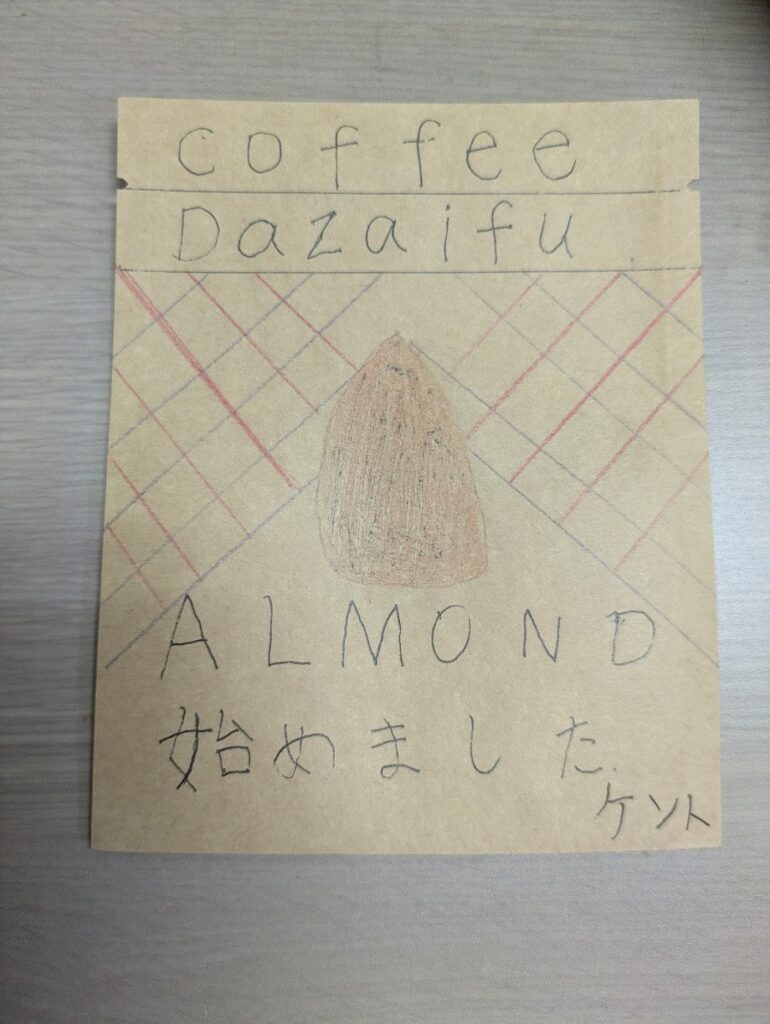 coffee
Dazaifu
ALMOND
始めました
ケント